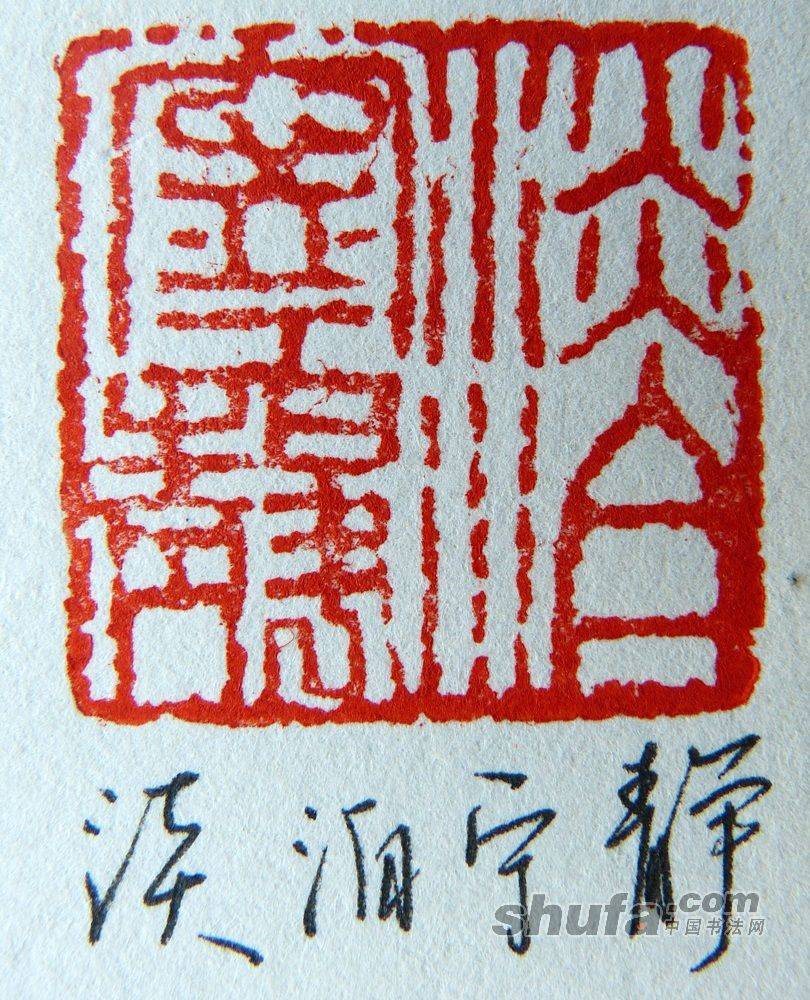 淡泊
寧靜
淡泊宁静
shufa.com
中国书法网